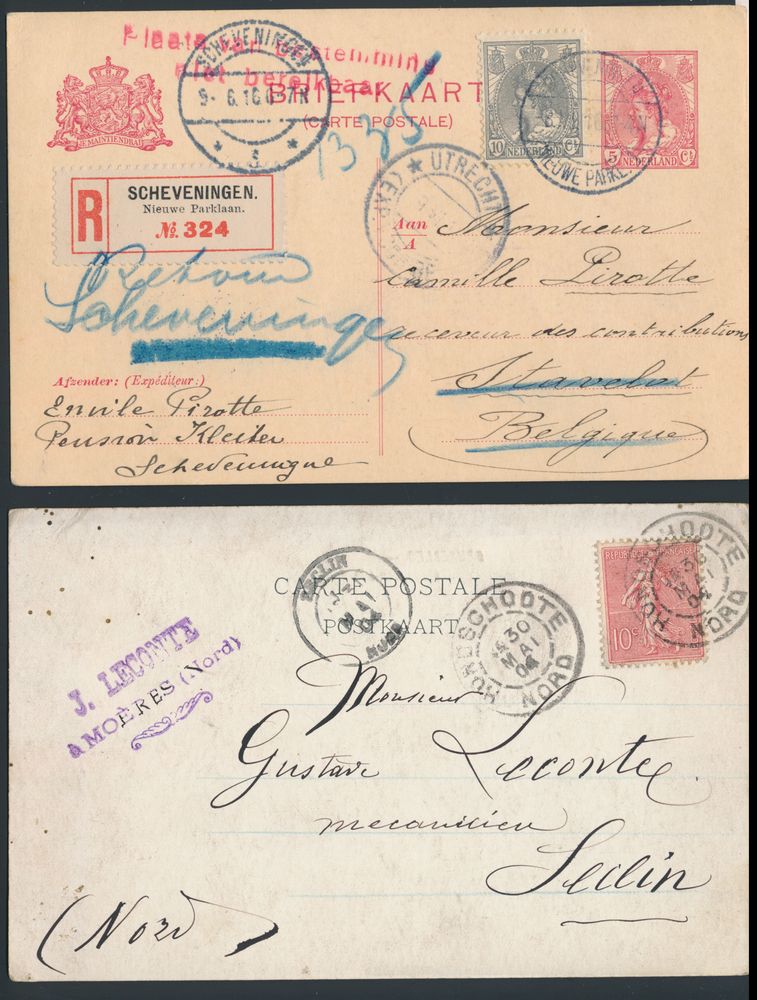 Plaats van bestemming
niet bereikbaar
SCHEVENINGEN
9- 6.16.6-7R
BRIEFKAART
(CARTE POSTALE)
JE MAINTIENDRAI
10 Ct
NEDERLAND
5 Ct
NEDERLAND
NIEUWE PARKL.
1325
R
SCHEVENINGEN.
Nieuwe Parklaan.
No. 324
UTRECHT
Aan
A
Monsieur
Camille Pirotte
receveur des contributions
Stavelot
Belgique
Retour
Scheveningen
Afzender: (Expéditeur:)
Emile Pirotte
Pension Kleiter
Scheveningue
CARTE POSTALE
POSTKAART
SECLIN
NORD
HONDSCHOOTE
30
MAI
04
NORD
REPUBLIQUE FRANÇAISE
10c
HONDSCHOOTE
MAI
04
NORD
J. LECONTE
à MOËRES (Nord)
Monsieur
Gustave Leconte
mecanicien
Seclin
(Nord)